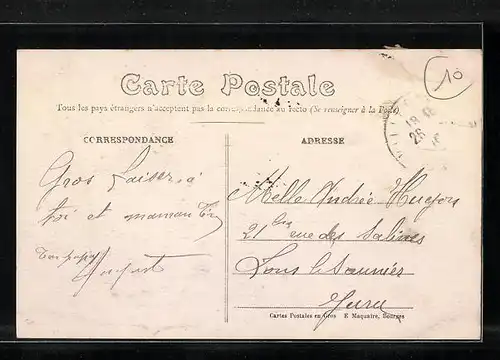 10
Carte Postale
Tous les pays étrangers n'acceptent pas la correspondance au recto (Se renseigner à la Poste)
CORRESPONDANCE
ADRESSE
Gros baiser à
toi et maman
Ton papa
August
Melle Andrée Hugon
21 bis rue des Salines
Lons le Saunier
Jura
Cartes Postales en Gros E Maquaire, Bourges